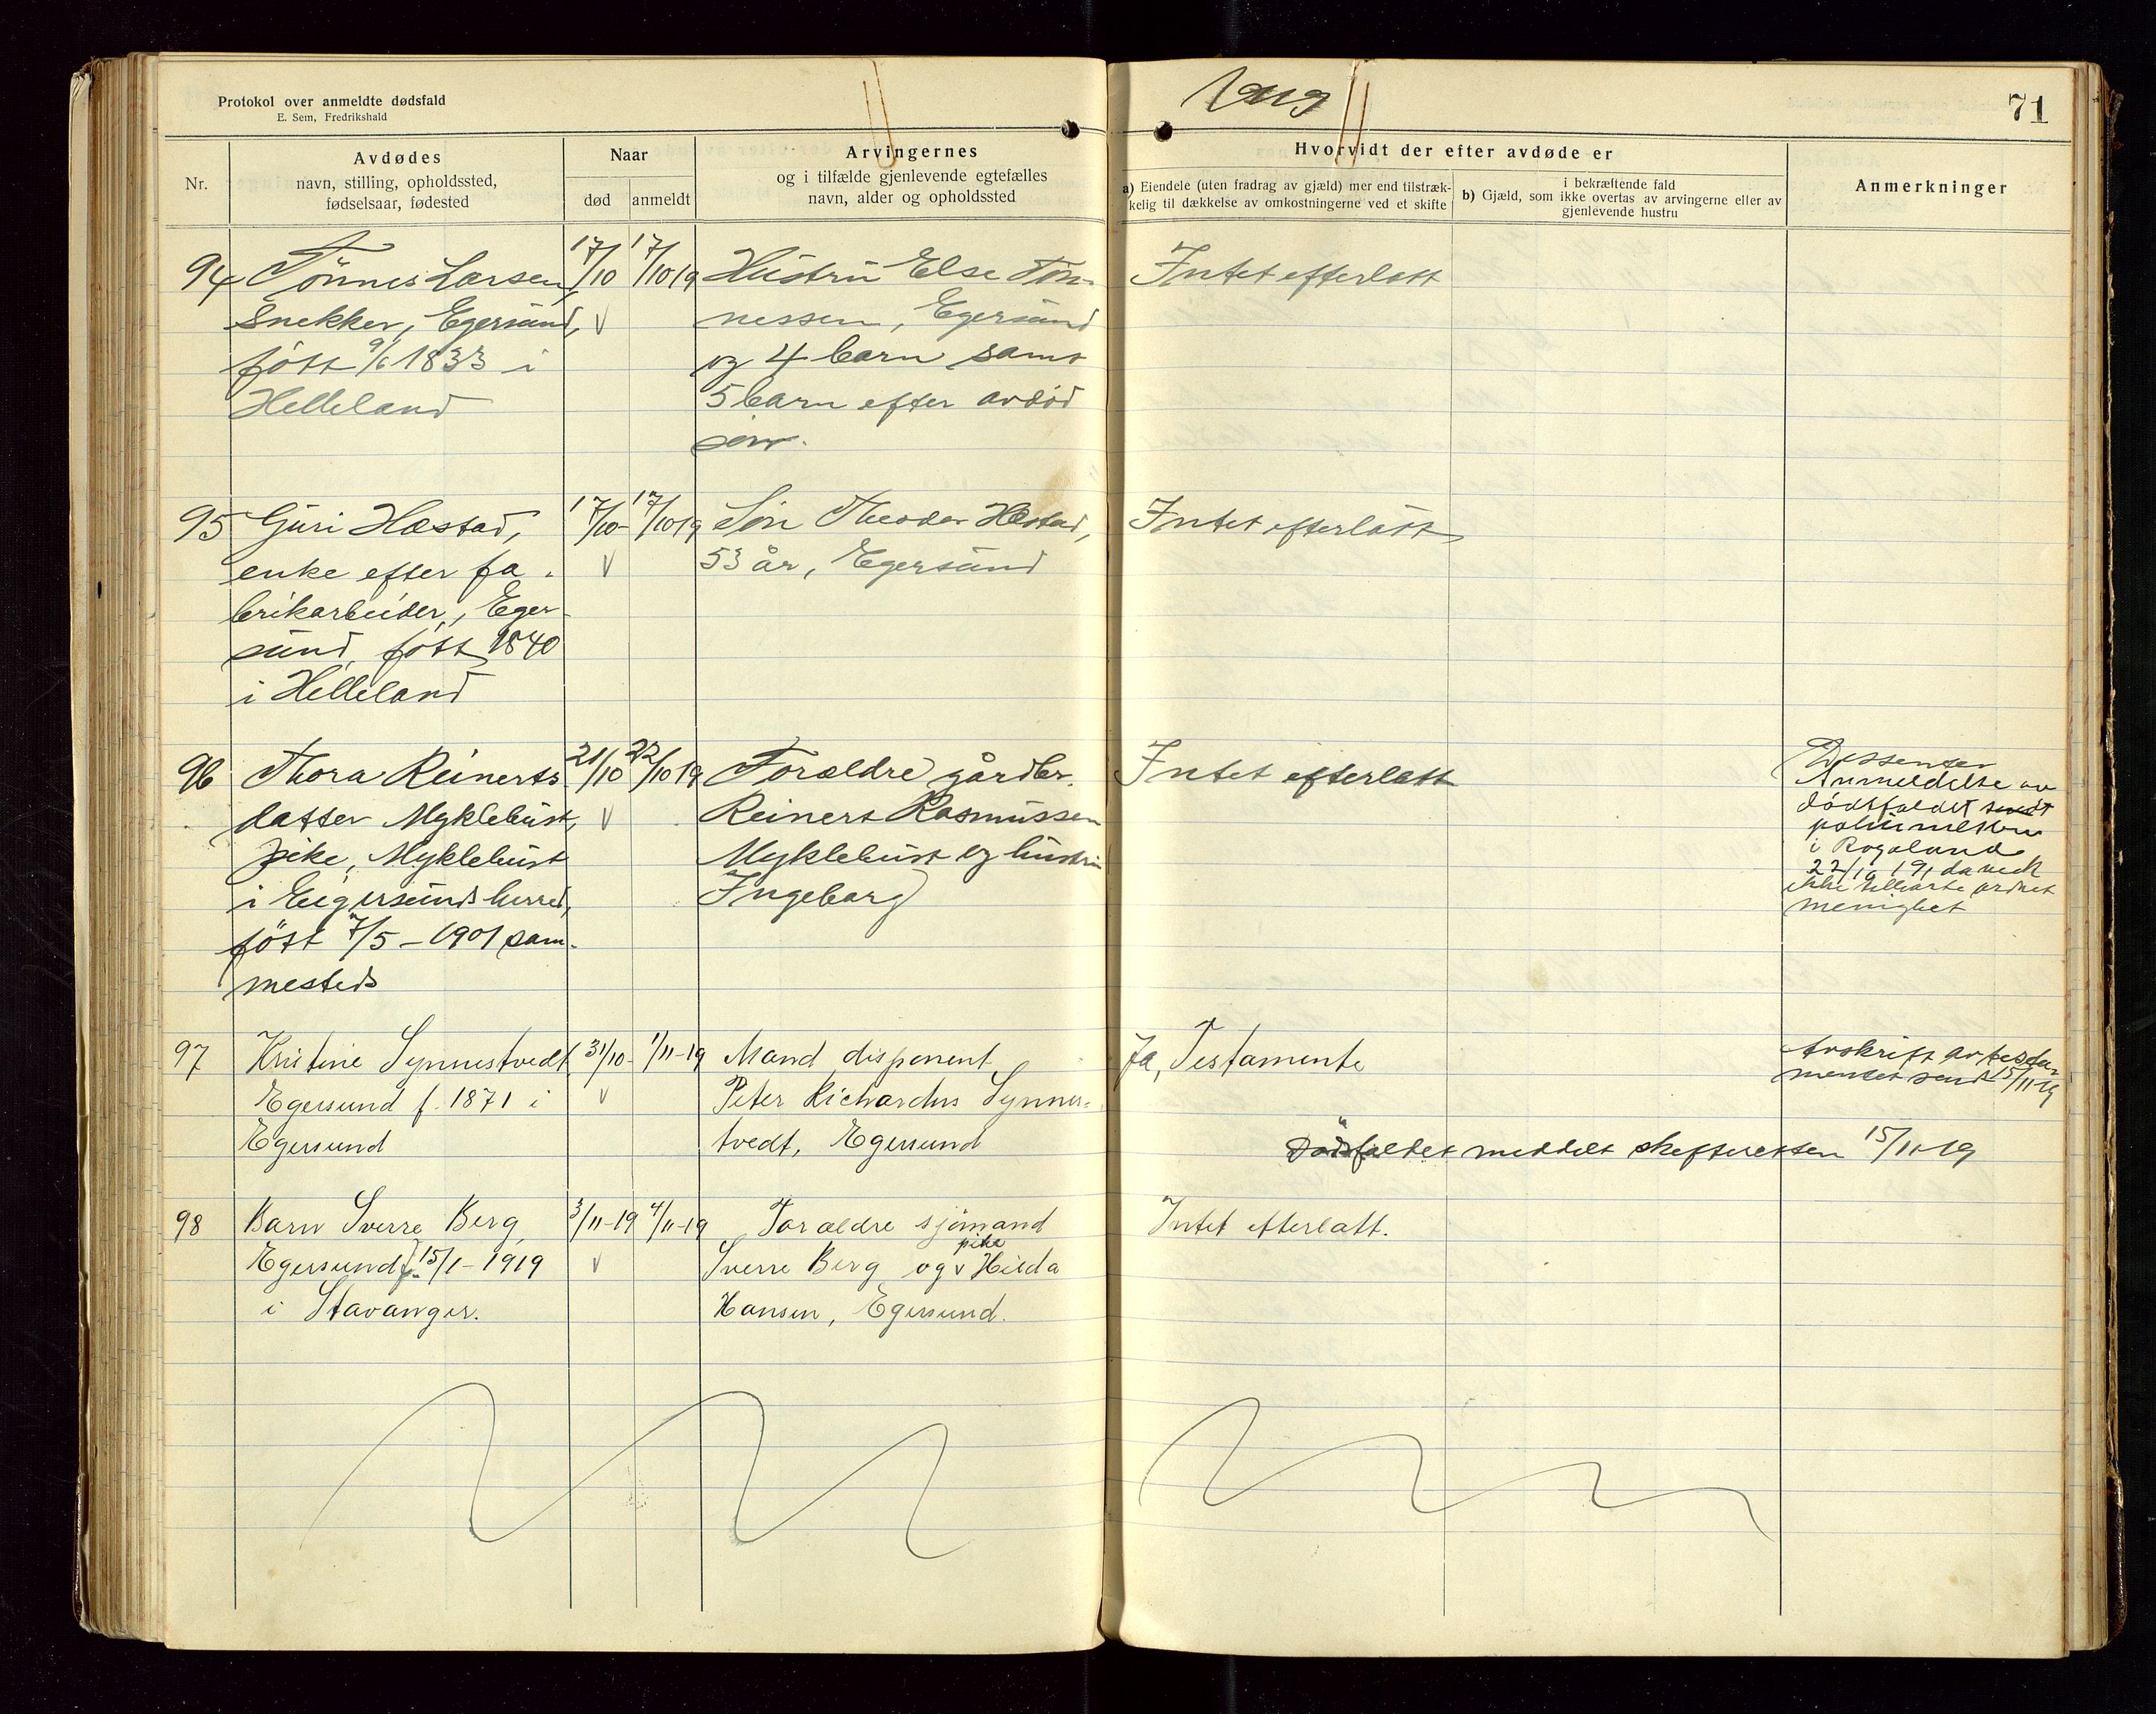 Protokol over anmeldte dødsfald
E. Sem, Fredrikshald
1919
71
Nr.
Avdødes
navn, stilling, opholdssted,
fødselsaar, fødested
Naar
død
anmeldt
Arvingernes
og i tilfælde gjenlevende egtefælles
navn, alder og opholdssted
Hvorvidt der efter avdøde er
a) Eiendele (uten fradrag av gjæld) mer end tilstræk-
kelig til dækkelse av omkostningerne ved et skifte
i bekræftende fald
b) Gjæld, som ikke overtas av arvingerne eller av
gjenlevende hustru
Anmerkninger
94
Tönnes Larsen,
Snekker, Egersund,
født 9/6 1833 i
Helleland
17/10
V
17/10 19
Hustru Else Tön-
nessen, Egersund
og 4 barn samt
5 barn efter avdöd
sön.
Intet efterlatt
95
Guri Hæstad,
enke efter fa-
brikarbeider, Eger-
sund, född 1840
i Helleland
17/10-
V
17/10 19
Sön Theodor Hæstad,
53 år, Egersund
Intet efterlatt
96
Thora Reinerts
datter Myklebust,
pike, Myklebust
i Eigersunds herred,
född 7/5-1901 sam-
mesteds
21/10
V
22/10 19
Forældre gårdbr.
Reinert Rasmussen
Myklebust og hustru
Ingeborg
Intet efterlatt
Dissenter
Anmeldelse av
dödsfaldet sendt
politimesteren
i Rogaland
22/10 19, da vedk
ikke tilhörte ordnet
menighet
97
Kristine Synnestvedt
Egersund f. 1871 i
Egersund
31/10-
V
1/11-19
Mand disponent
Peter Richardus Synnes-
tvedt, Egersund
Ja, Testamente
Avskrift av testa-
mentet sendt 15/11-19
Dödsfaldet meddelt skifteretten 15/11-19
98
Barn Sverre Berg
Egersund f. 15/1-1919
i Stavanger.
3/11-19
V
4/11-19
Forældre sjömand
Sverre Berg og pike Hilda
Hansen, Egersund.
Intet efterlatt.